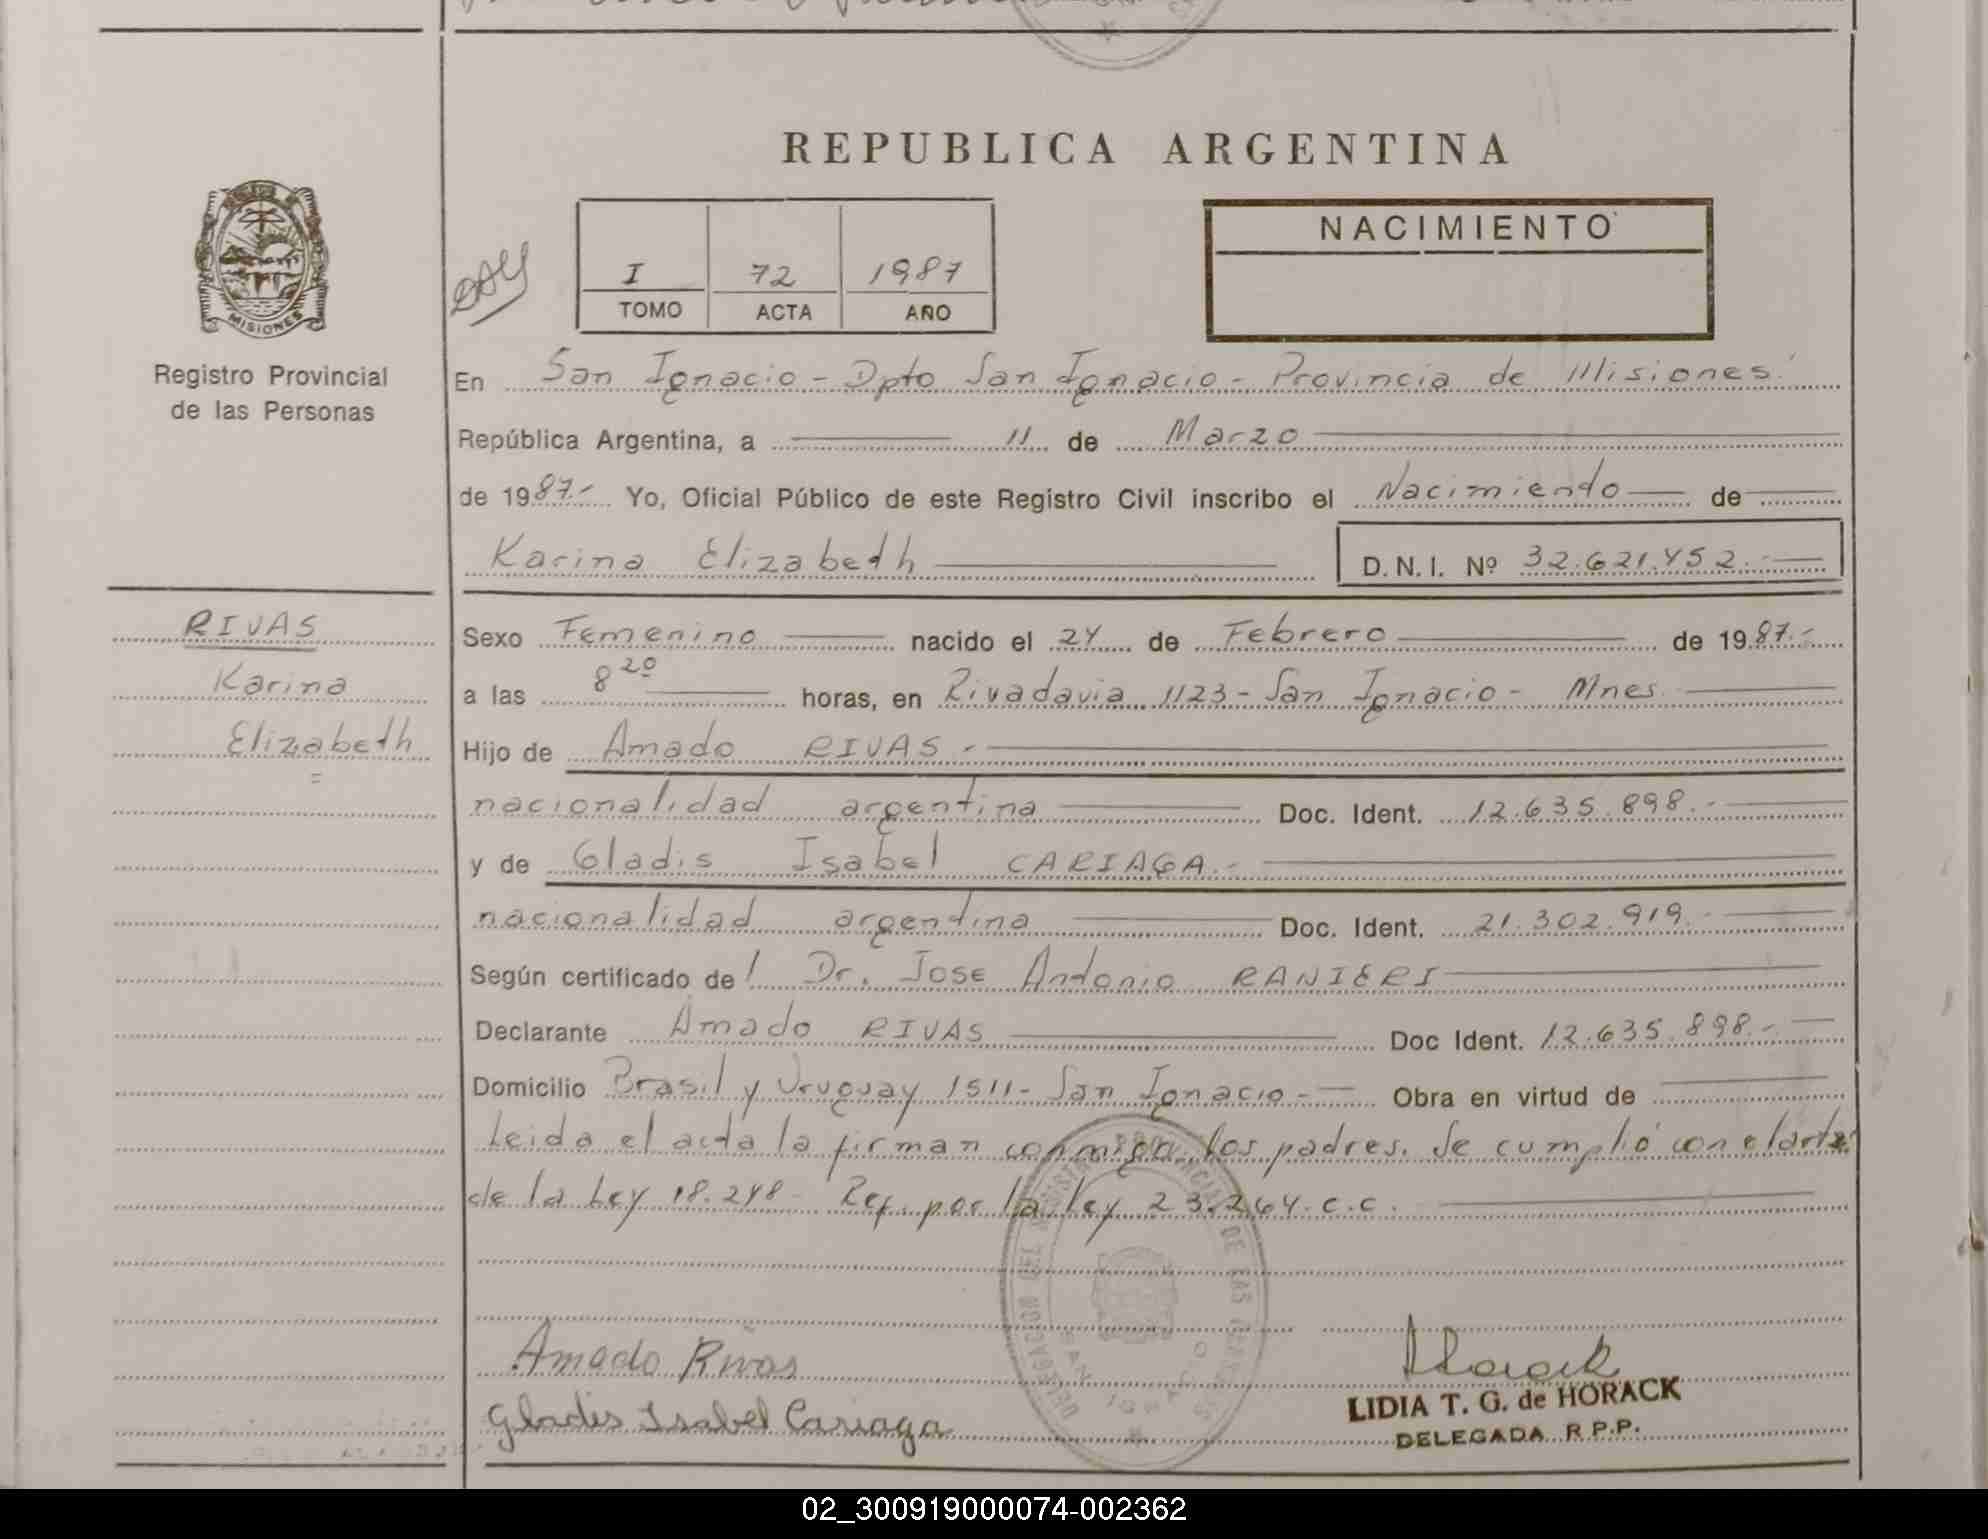 REPUBLICA ARGENTINA
MISIONES
Registro Provincial
de las Personas
I 72 1987
TOMO ACTA AÑO
NACIMIENTO
En San Ignacio - Dpto San Ignacio - Provincia de Misiones
República Argentina, a 11 de Marzo
de 1987.- Yo, Oficial Público de este Registro Civil inscribo el Nacimiento de
Karina Elizabeth D.N.I. Nº 32.621.452.-
RIVAS
Karina
Elizabeth
Sexo Femenino nacido el 24 de Febrero de 1987.-
a las 8 20 horas, en Rivadavia 1123 - San Ignacio - Mnes.
Hijo de Amado RIVAS.-
nacionalidad argentina Doc. Ident. 12.635.898.-
y de Gladis Isabel CARIAGA.-
nacionalidad argentina Doc. Ident. 21.302.919.-
Según certificado de l Dr. Jose Antonio RANIERI
Declarante Amado RIVAS Doc Ident. 12.635.898.-
Domicilio Brasil y Uruguay 1511 - San Ignacio - Obra en virtud de
Leida el acta la firman conmigo los padres. Se cumplió con el art 2
de la Ley 18.248 - Ref. por la ley 23.264.c.c.
DELEGACION DEL REGISTRO PROVINCIAL DE LAS PERSONAS
SAN IGNACIO
Amado Rivas
Horack
Gladis Isabel Cariaga
LIDIA T. G. de HORACK
DELEGADA R.P.P.
02_300919000074-002362